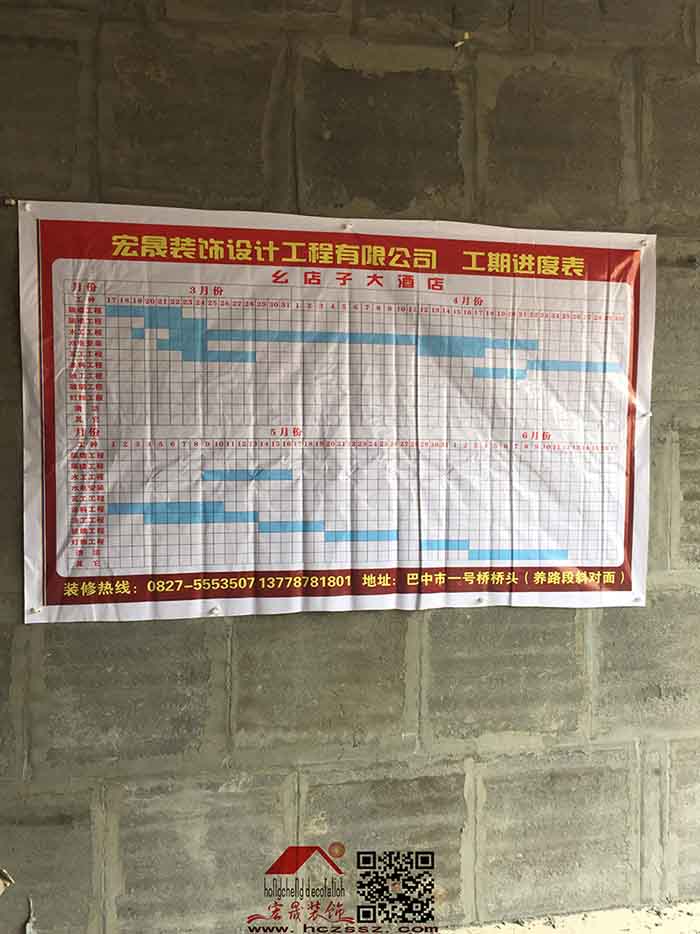 宏晟装饰设计工程有限公司 工期进度表
幺店子大酒店
月份 3月份 4月份
工种 17 18 19 20 21 22 23 24 25 26 27 28 29 30 31 1 2 3 4 5 6 7 8 9 10 11 12 13 14 15 16 17 18 19 20 21 22 23 24 25 26 27 28 29 30
水电安装
灯饰工程
清洁
其它
月份 5月份 6月份
工种 1 2 3 4 5 6 7 8 9 10 11 12 13 14 15 16 17 18 19 20 21 22 23 24 25 26 27 28 29 30 31 1 2 3 4 5 6 7 8 9 10 11 12 13 14 15 16
木工工程
水电安装
瓦工工程
涂料工程
灯饰工程
清洁
其它
装修热线：0827-5553507 13778781801 地址：巴中市一号桥桥头（养路段斜对面）
hongcheng decoration
宏晟装饰
www.hczssz.com